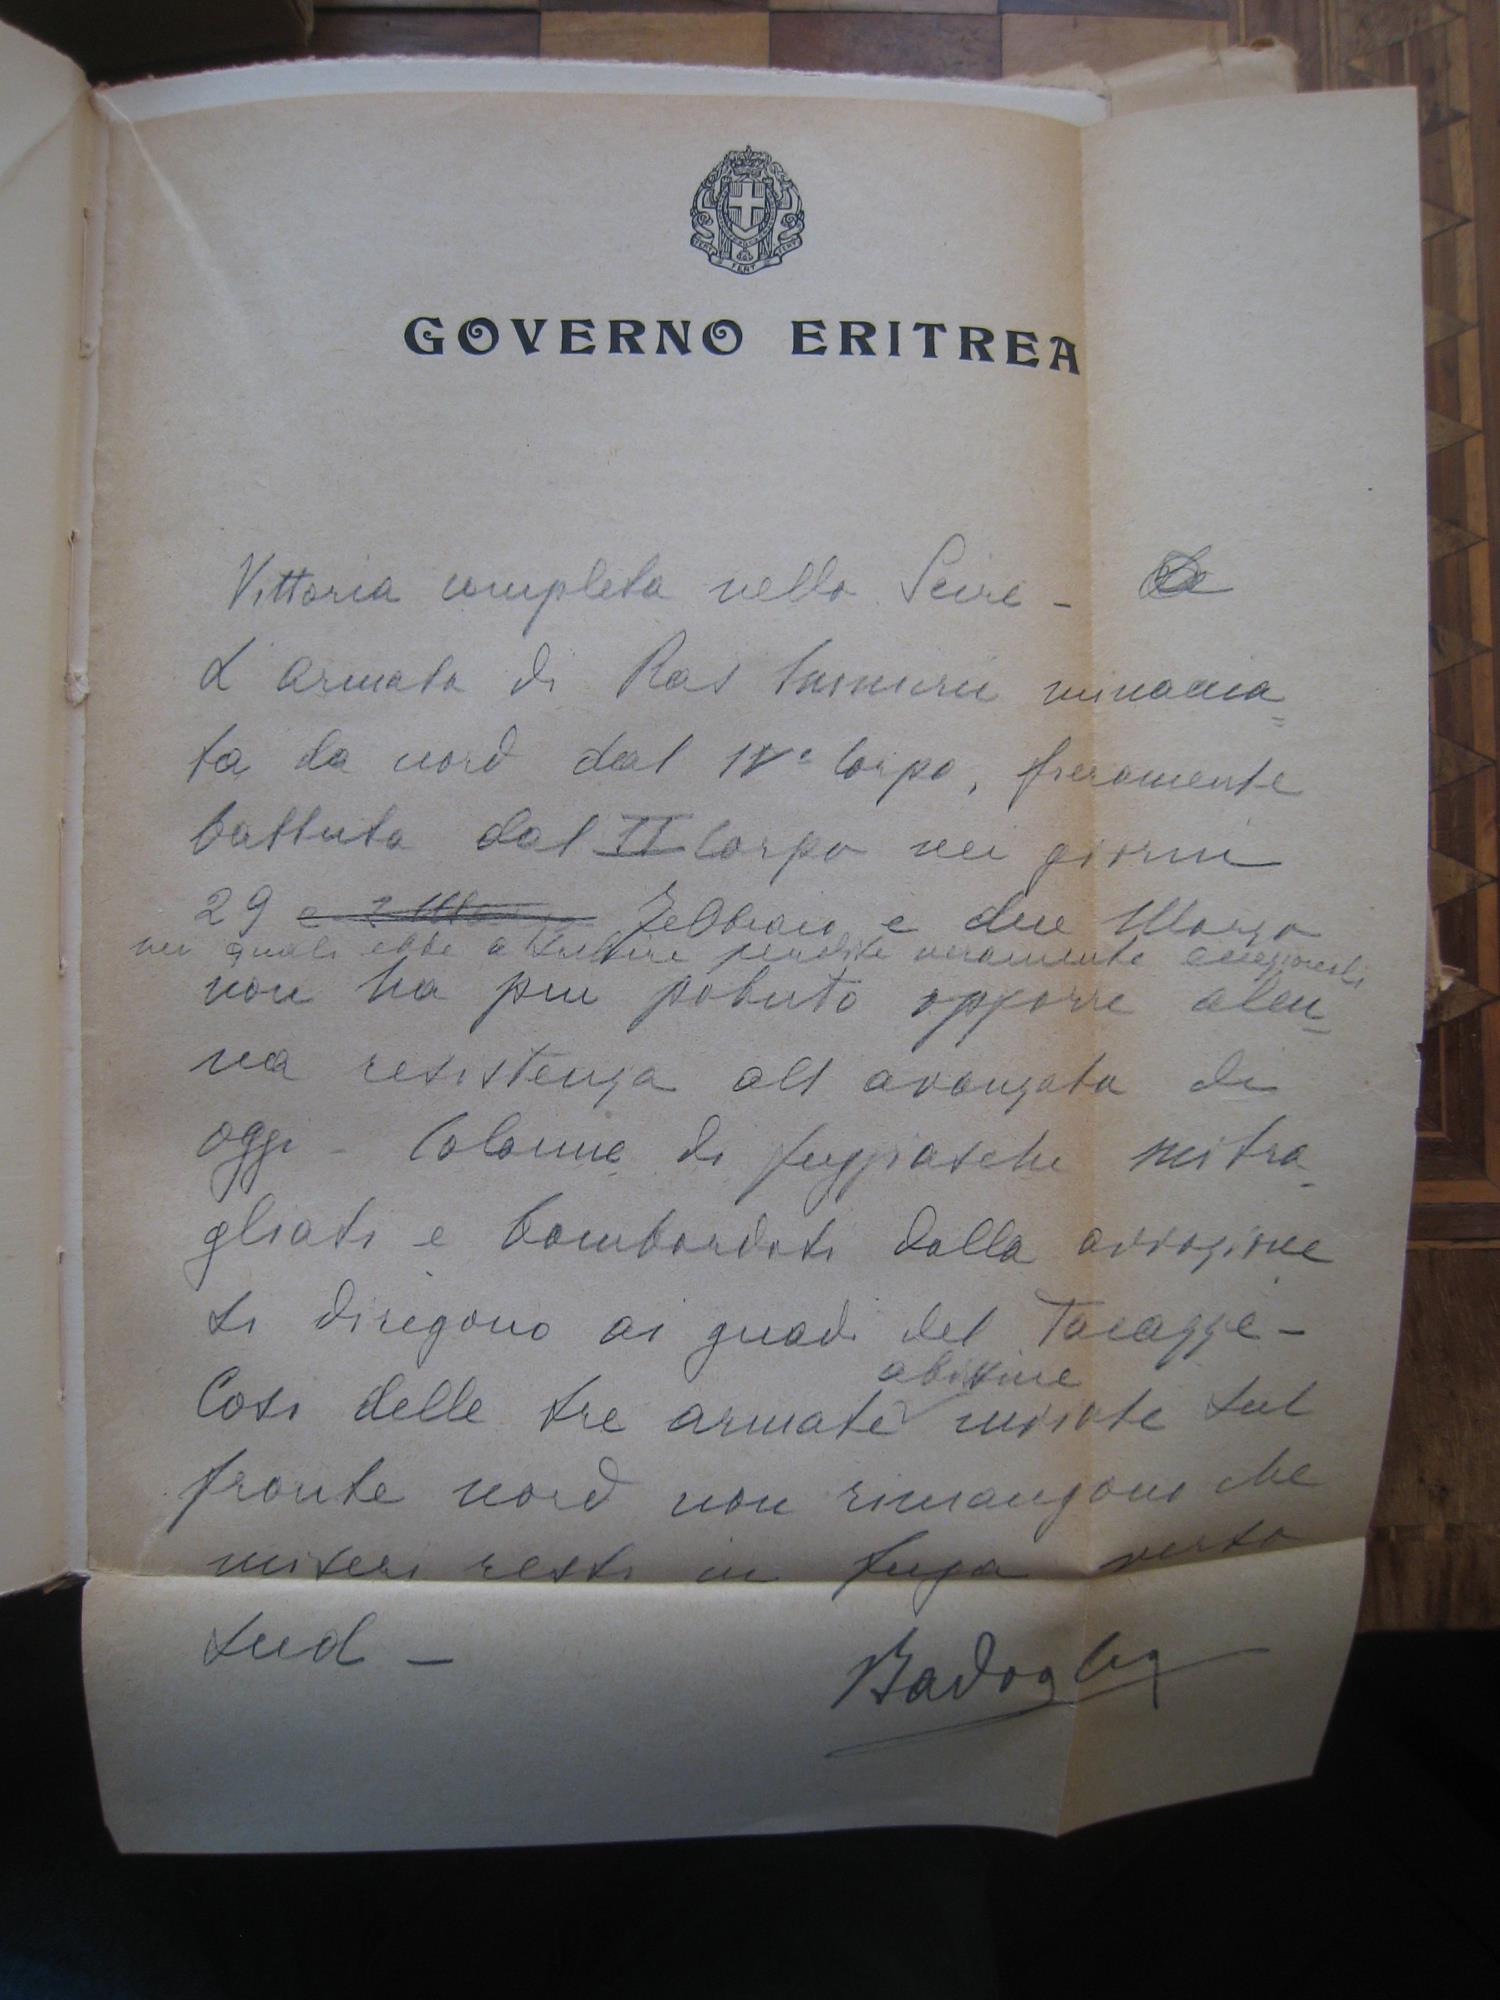 FERT FERT FERT
GOVERNO ERITREA
Vittoria completa nello Scire -
L'armata di Ras Immirù minaccia=
ta da nord dal IV° Corpo, fieramente
battuta dal II Corpo nei giorni
29 febbraio e due Marzo
nei quali ebbe a subire perdite veramente eccezionali
non ha più potuto opporre alcu-
na resistenza all'avanzata di
oggi - Colonne di fuggiaschi mitra-
gliati e bombardati dalla aviazione
si dirigono ai guadi del Tacazze -
abissine
Così delle tre armate iniziate sul
fronte nord non rimangono che
miseri resti in fuga verso
sud -
Badoglio